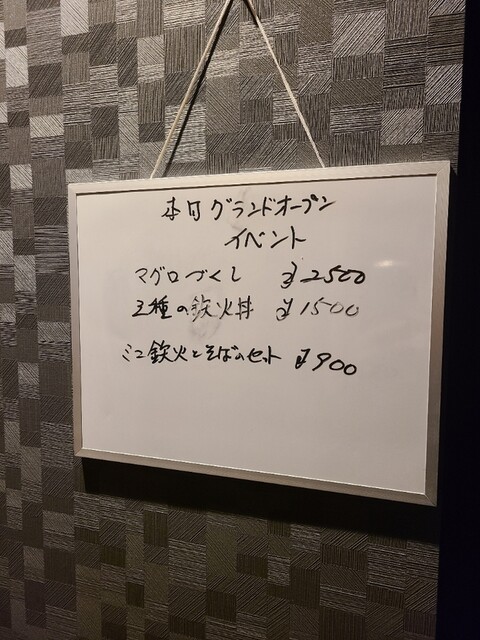 本日グランドオープン
イベント
マグロづくし ¥2500
三種の鉄火丼 ¥1500
ミニ鉄火とそばのセット ¥900